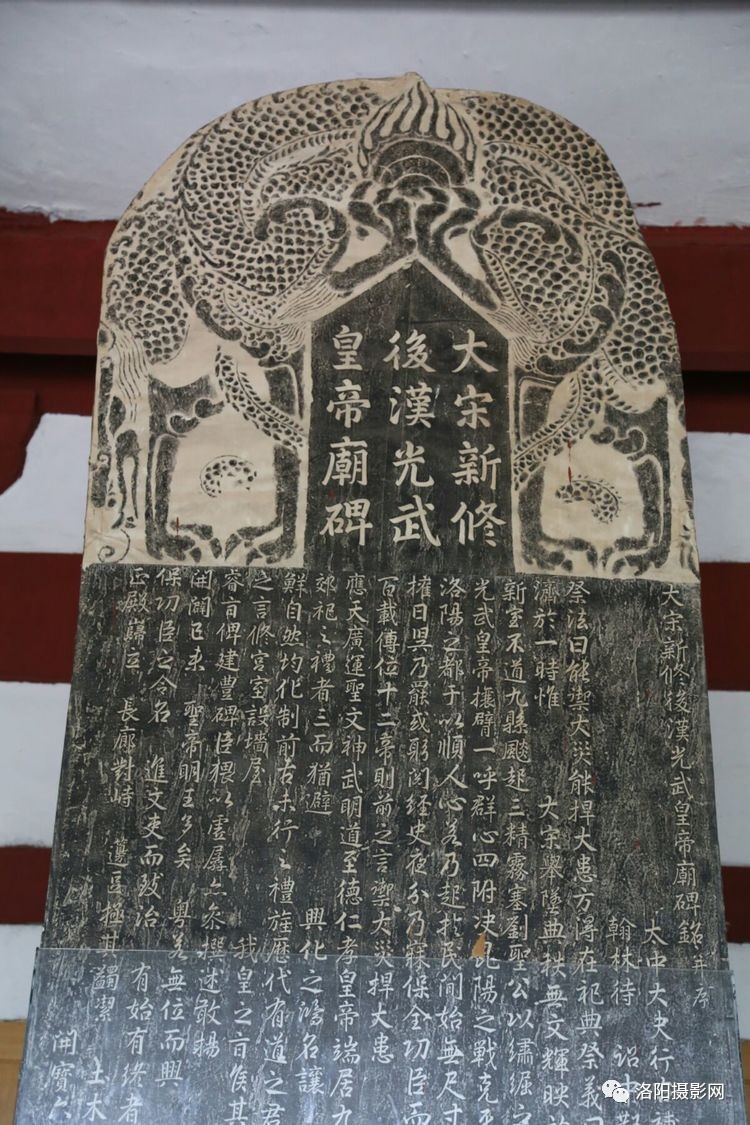 大宋新修
後漢光武
皇帝廟碑
大宋新修後漢光武皇帝廟碑銘并序
太中大夫行
翰林待詔
祭法曰能禦大災能捍大患方得在祀典祭義
濟於一時惟 大宋舉墜典秩無文輝映
新室不道九縣飈起三精霧塞劉聖公以繡䘿之
光武皇帝攘臂一呼群心四附決昆陽之戰克
洛陽之都于以順人心若乃起於民間始無尺寸
權日昃乃罷或躬閱經史夜分乃寐保全功臣而
百載傳位十二帝則前之言禦大災捍大患
應天廣運聖文神武明道至德仁孝皇帝端居九
郊祀之禮者三而猶避 興化之鴻名讓
鮮自然均化制前古未行之禮旌歷代有道之君
之言修宮室設墻屋 我皇之旨俟其
睿旨俾建豊碑臣猥以虛孱厶忝撰述敢揚
開闢已來 聖帝明王多矣 粤若無位而興
保功臣之令名 進文吏而致治 有始有終者
正殿巋立 長廊對峙 邊豆極其蠲潔 土木
開寶六
洛阳摄影网